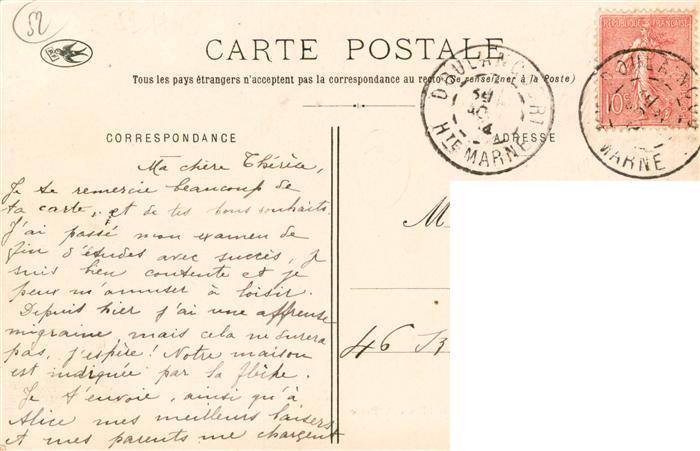 52
CARTE POSTALE
RÉPUBLIQUE FRANÇAISE
10
Tous les pays étrangers n'acceptent pas la correspondance au recto (Se renseigner à la Poste)
HTE MARNE
MARNE
CORRESPONDANCE
ADRESSE
Ma chère Thérèse,
Je te remercie beaucoup de
ta carte, et de tes bons souhaits.
J'ai passé mon examen de
fin d'études avec succès, je
suis bien contente et je
peux m'amuser à loisir.
Depuis hier j'ai une affreuse
migraine mais cela ne durera
pas, j'espère! Notre maison
est indiquée par la flèche.
Je t'envoie, ainsi qu'à
Alice mes meilleurs baisers
et mes parents me chargent
M
46 B